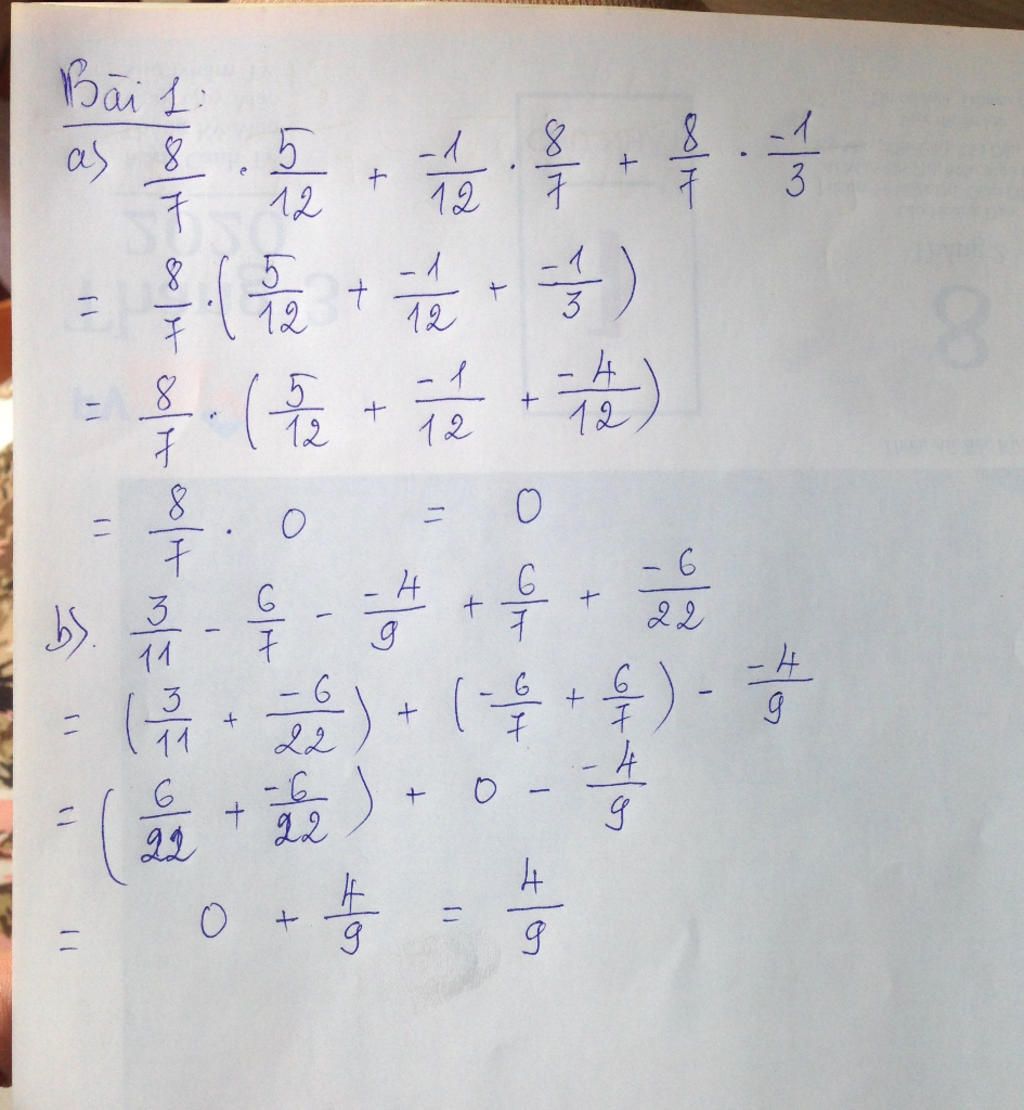 Bài 1:
a) 8/7 . 5/12 + -1/12 . 8/7 + 8/7 . -1/3
= 8/7 . (5/12 + -1/12 + -1/3)
= 8/7 . (5/12 + -1/12 + -4/12)
= 8/7 . 0 = 0
b). 3/11 - 6/7 - -4/9 + 6/7 + -6/22
= (3/11 + -6/22) + (-6/7 + 6/7) - -4/9
= (6/22 + -6/22) + 0 - -4/9
= 0 + 4/9 = 4/9
2020
Tháng 3
1
Tháng 2
8